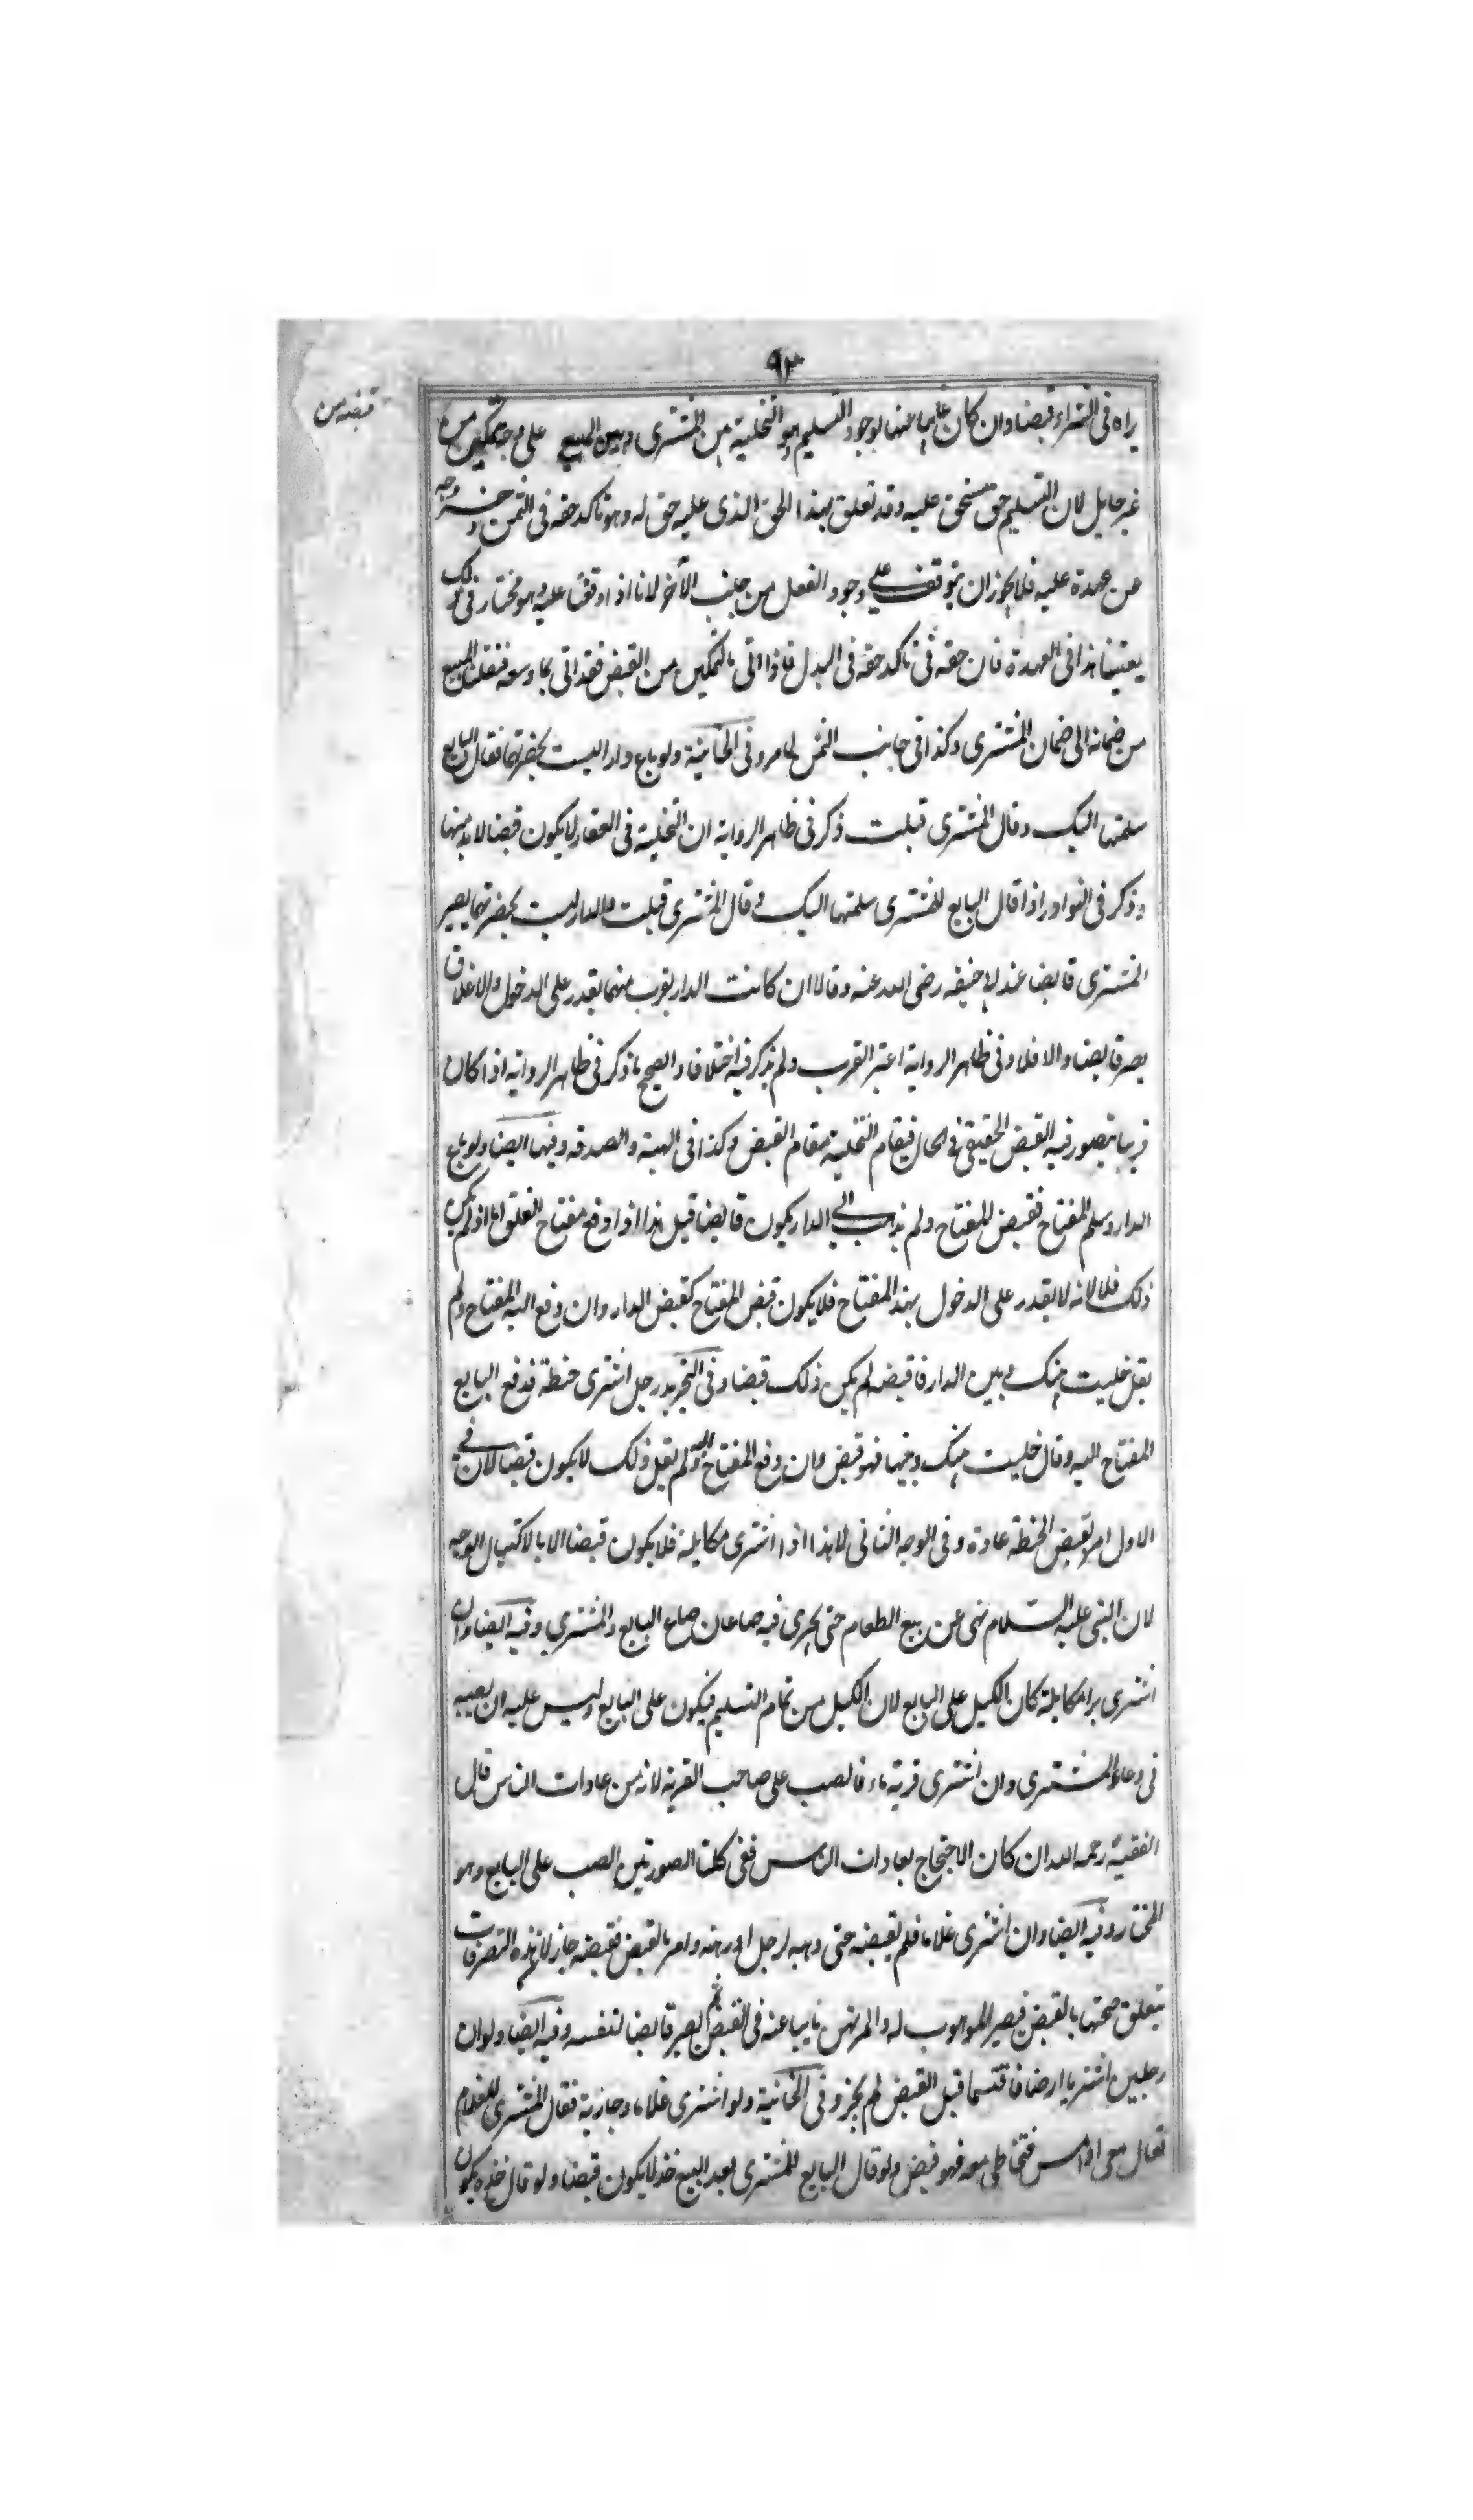 ٩٣
يراه فى الشراء قبضا وان كان غايبا عنها لوجود التسليم وهو التخلية بين المشترى وبين المبيع على وجه يتمكن من
قبضه من
غير حايل لان التسليم حق مستحق عليه وقد تعلق بهذا الحق الذى عليه حق له وهو تاكد حقه فى الثمن وخروجه
عن عهدة عليه فلا يجوز ان يتوقف على وجود الفعل من جانب الآخر لانا اذا وقفنا عليه وهو مختار فى ذلك
يبقى هذا فى العهدة فان حقه فى تاكد حقه فى البدل فاذا اتى بالتمكين من القبض فقد اتى بما وسعه فنقلنا المبيع
من ضمانه الى ضمان المشترى وكذا فى جانب الثمن لما مر وفى الخانية ولو باع دارا ليست بحضرتهما فقال البايع
سلمتها اليك وقال المشترى قبلت ذكر فى ظاهر الرواية ان التخلية فى العقار لا يكون قبضا لابد منها
وذكر فى النوادر اذا قال البايع للمشترى سلمتها اليك وقال المشترى قبلت والدار ليست بحضرتهما يصير
المشترى قابضا عند ابى حنيفه رضى الله عنه وقالا ان كانت الدار بقرب منهما يقدر على الدخول والاغلاق
يصير قابضا والا فلا وفى ظاهر الرواية اعتبر القرب ولم يذكر فيه اختلافا والصحيح ما ذكر فى ظاهر الرواية اذا كان
قريبا يتصور فيه القبض الحقيقى فى الحال فيقام التخلية مقام القبض وكذا فى الهبة والصدقه وفيها ايضا ولو باع
الدار وسلم المفتاح فقبض المفتاح ولم يذهب الى الدار يكون قابضا قيل هذا اذا دفع مفتاح الغلق اما اذا لم يكن
ذلك فلا لانه لا يقدر على الدخول بهذا المفتاح فلا يكون قبض المفتاح كقبض الدار وان دفع اليه المفتاح ولم
يقل خليت بينك وبين الدار فاقبضه لم يكن ذلك قبضا وفى التجريد رجل اشترى حنطة فدفع البايع
المفتاح اليه وقال خليت بينك وبينها فهو قبض وان دفع المفتاح اليه ولم يقل ذلك لا يكون قبضا لان فى
الاول امر بقبض الحنطة عادة وفى الوجه الثانى لا هذا اذا اشترى مكايلة فلا يكون قبضا الا بالاكتيال لوجه
لان النبى عليه السلام نهى عن بيع الطعام حتى يجرى فيه صاعان صاع البايع والمشترى وفيه ايضا وان
اشترى برا مكايلة كان الكيل على البايع لان الكيل من تمام التسليم فيكون على البايع وليس عليه ان يصبه
فى وعاء المشترى وان اشترى قربة ماء فالصب على صاحب القربة لانه من عادات الناس قال
الفقيه رحمه الله ان كان الاحتجاج بعادات الناس ففى كلتا الصورتين الصب على البايع وهو
المختار وفيه ايضا وان اشترى غلاما فلم يقبضه حتى وهبه لرجل او رهنه وامر بالقبض فقبضه جاز لان هذه التصرفات
يتعلق صحتها بالقبض فيصير الموهوب له والمرتهن نايبا عنه فى القبض ثم يصير قابضا لنفسه وفيه ايضا ولو ان
رجلين اشتريا ارضا فاقتسما قبل القبض لم يجز وفى الخانية ولو اشترى غلاما وجارية فقال المشترى للغلام
تعال معى او امش فتخطى معه فهو قبض ولو قال البايع للمشترى بعد البيع خذ لا يكون قبضا ولو قال خذه يكون